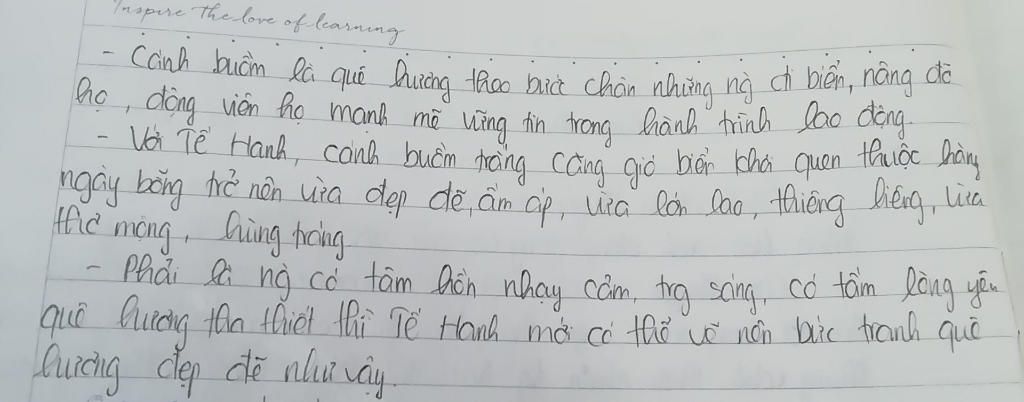 Inspire the love of learning
- Cánh buồm là quê hương theo bước chân những ng` đi biển, nâng đỡ
họ, động viên họ mạnh mẽ vững tin trong hành trình lao động.
- Với Tế Hanh, cánh buồm trắng căng gió biển khơi quen thuộc hàng
ngày bỗng trở nên vừa đẹp đẽ, ấm áp, vừa lớn lao, thiêng liêng, vừa
thơ mộng, hùng tráng.
- Phải là ng` có tâm hồn nhạy cảm, trg sáng, có tấm lòng yêu
quê hương tha thiết thì Tế Hanh mới có thể vẽ nên bức tranh quê
hương đẹp đẽ như vậy.